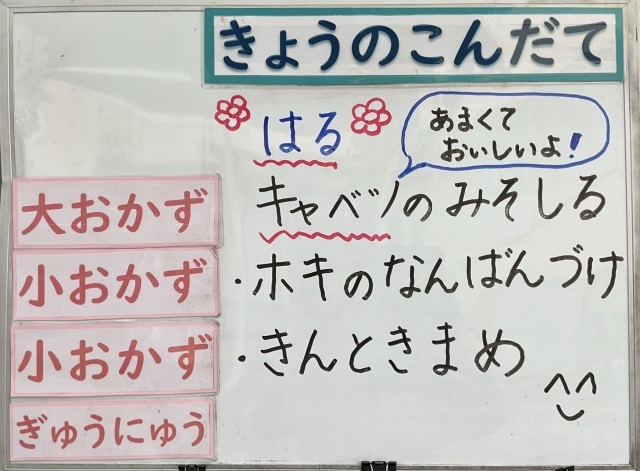 きょうのこんだて
はる
あまくて
おいしいよ!
大おかず キャベツのみそしる
小おかず ・ホキのなんばんづけ
小おかず ・きんときまめ
ぎゅうにゅう